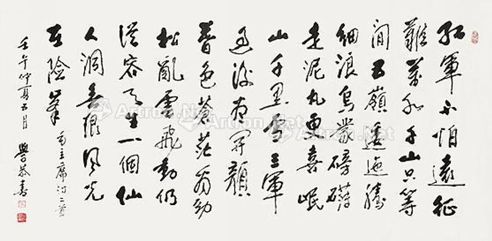 紅軍不怕遠征
難萬水千山只等
閒五嶺逶迤騰
細浪烏蒙磅礴
走泥丸更喜岷
山千里雪三軍
過後尽開顏
暮色蒼茫看勁
松亂雲飛渡仍
從容天生一個仙
人洞無限風光
在險峯
毛主席詩二首
壬午仲夏五月